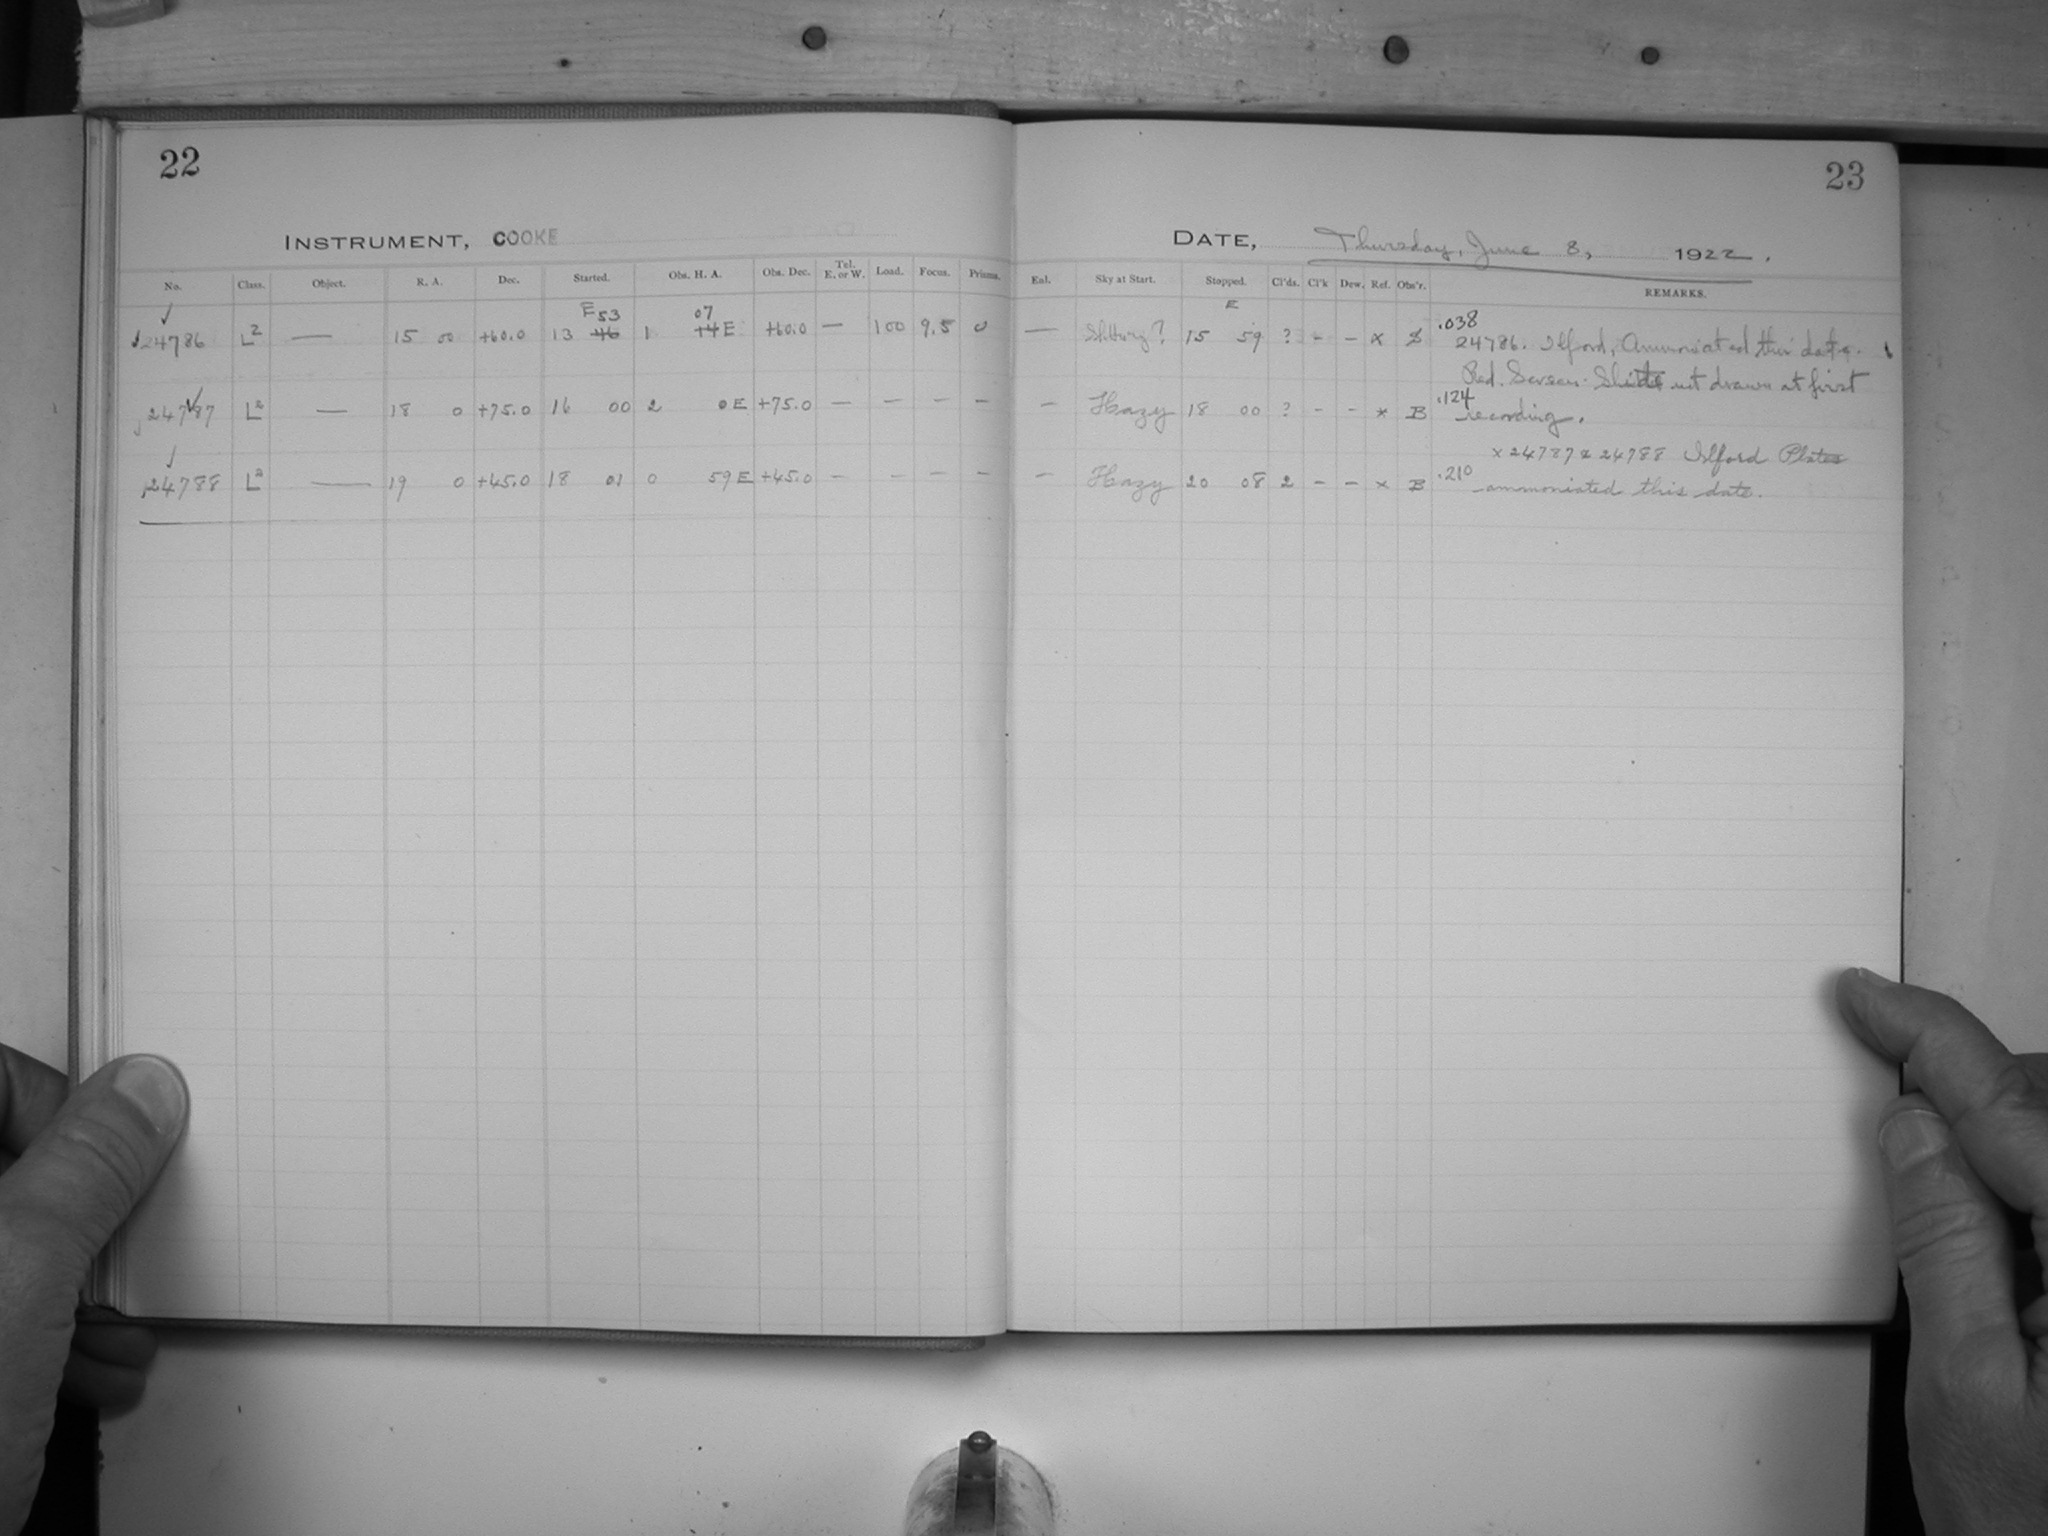 22
23
INSTRUMENT, COOKE
DATE, Thursday, June 8, 1922.
No. Class. Object. R. A. Dec. Started. Obs. H. A. Obs. Dec. Tel. E. or W. Load. Focus. Prisms. Enl. Sky at Start. Stopped. Cl'ds. Cl'k Dew. Ref. Obs'r. REMARKS.
F 53 07 E .038
24786 L2 — 15 00 +60.0 13 46 1 14 E +60.0 — 100 9.5 0 — ? 15 59 ? - - x S 24786. Ilford, Ammoniated this date.
Red. Screen. not drawn at first
24787 L2 — 18 0 +75.0 16 00 2 0 E +75.0 — — — — — Hazy 18 00 ? - - x B .124 recording.
x 24787 & 24788 Ilford Plates
24788 L2 — 19 0 +45.0 18 01 0 59 E +45.0 — — — — — Hazy 20 08 2 - - x B .210 ammoniated this date.